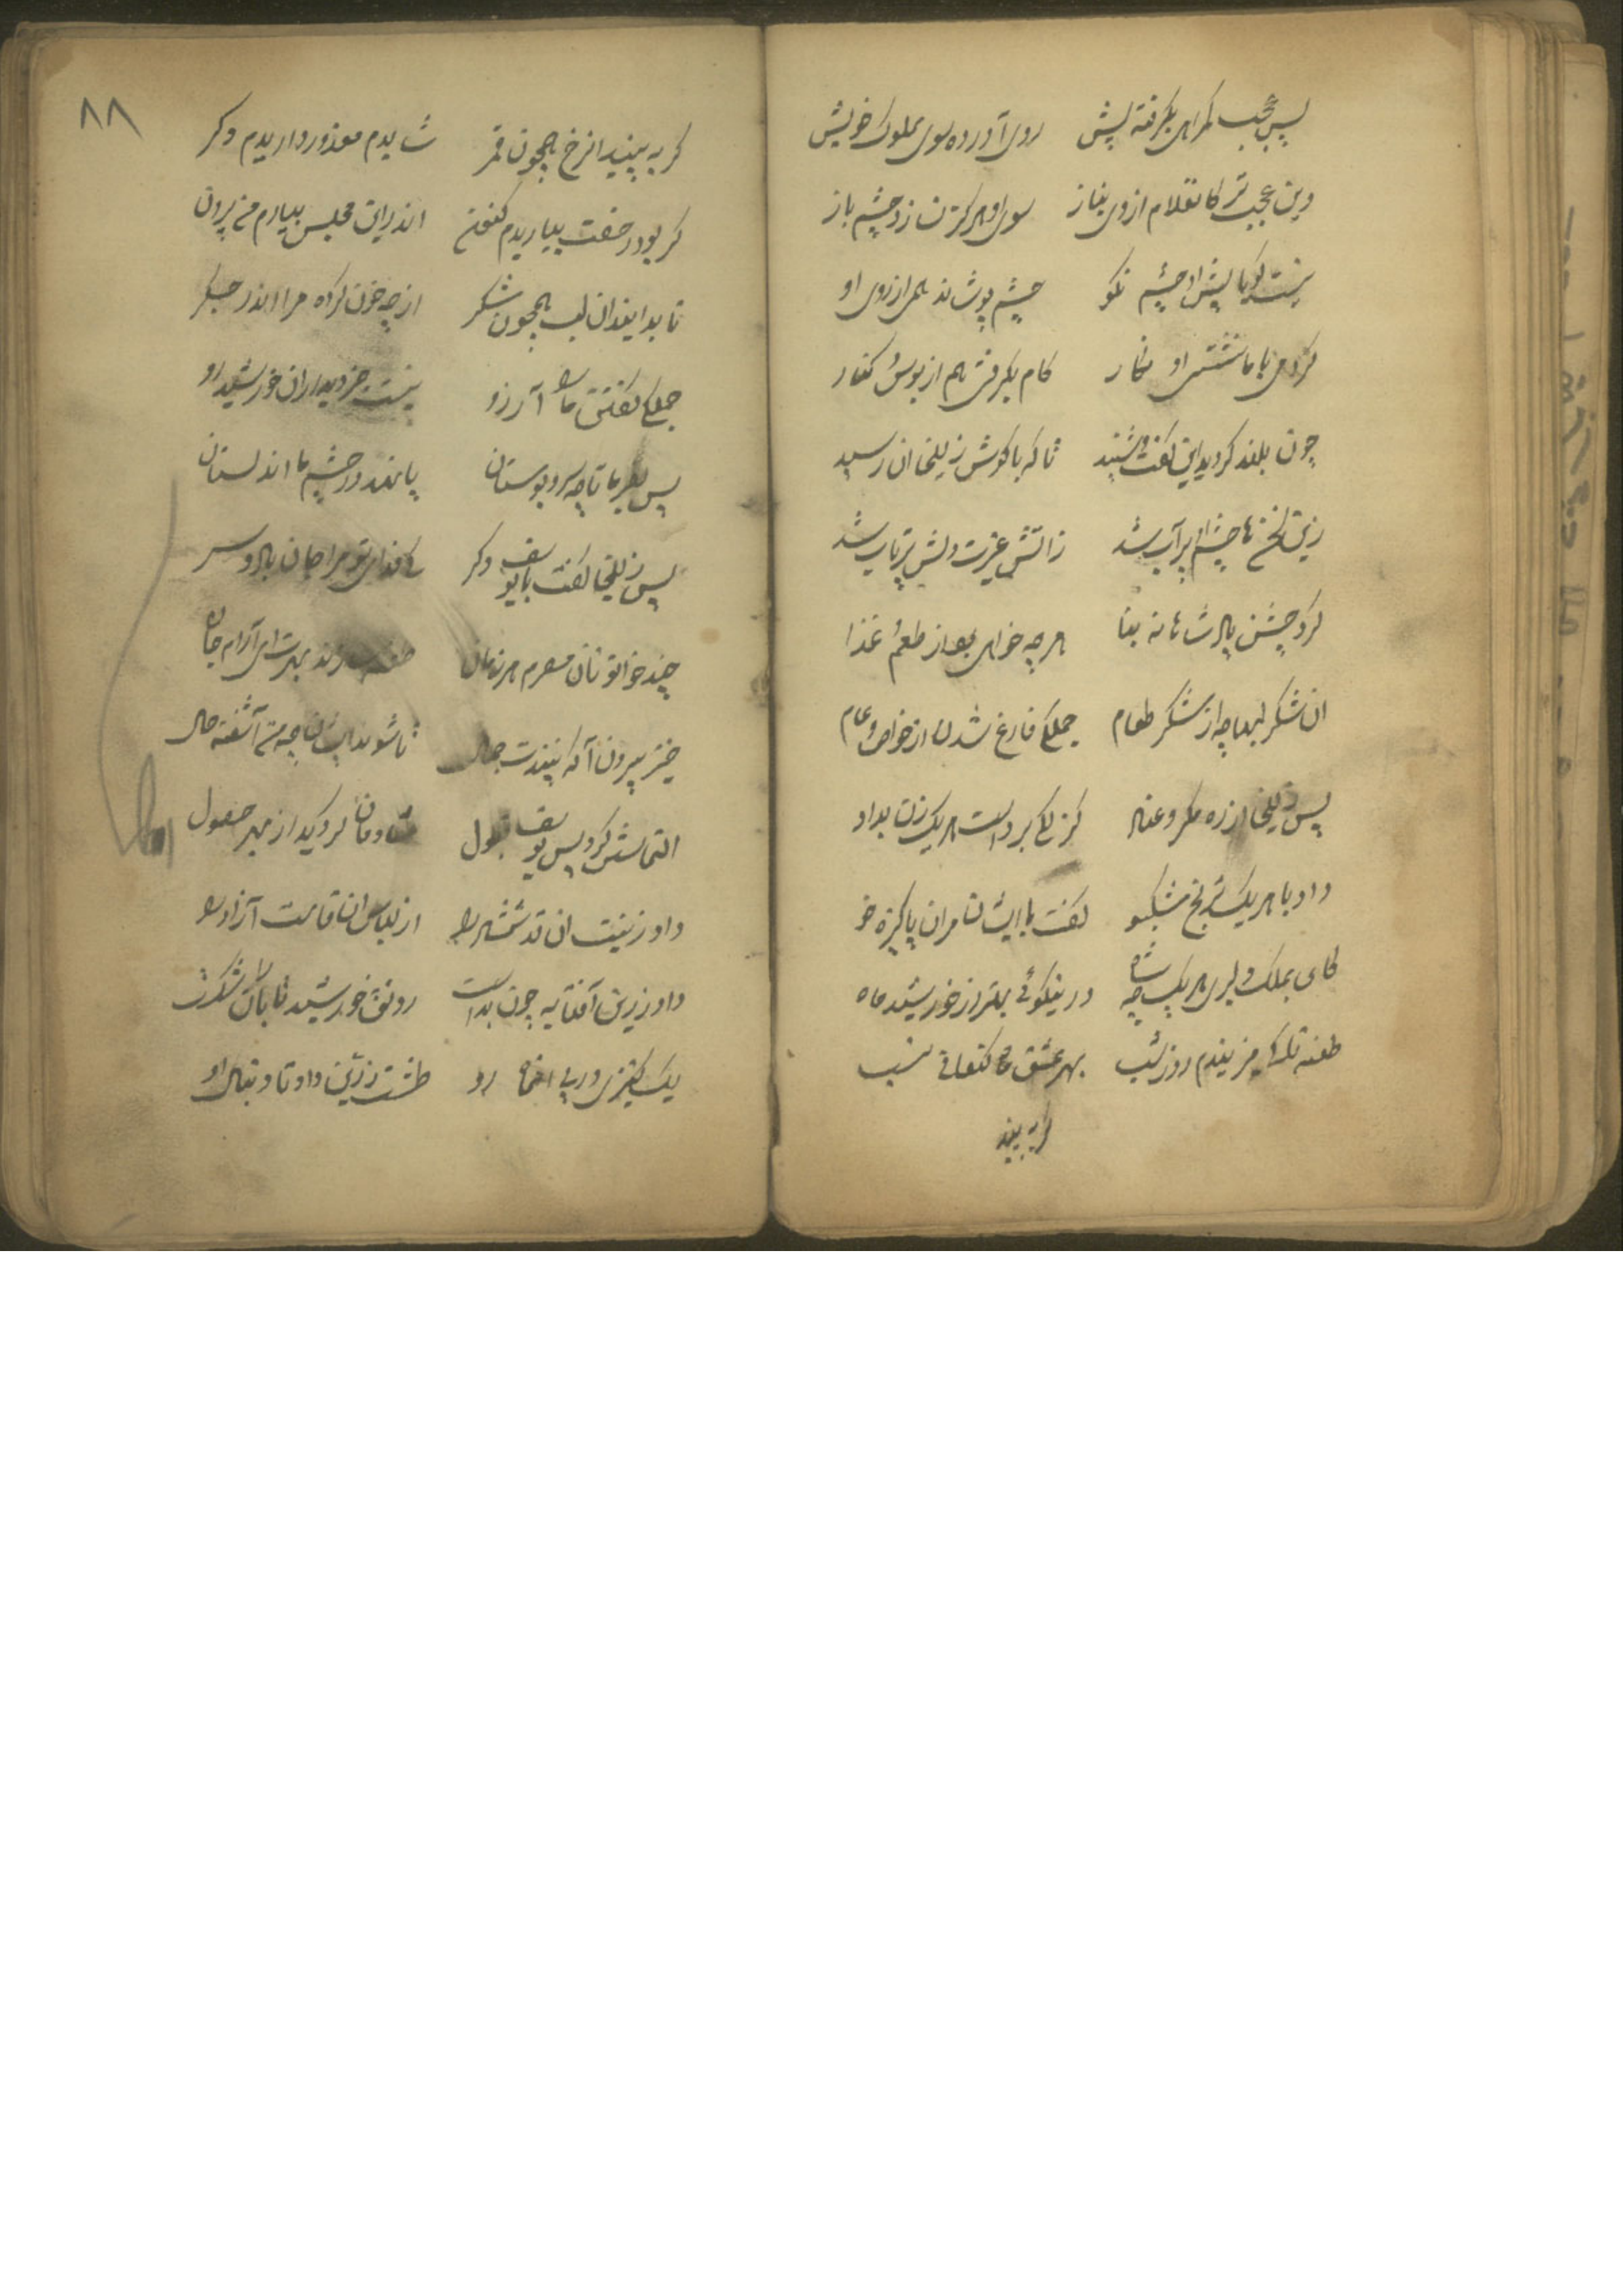 پس عجب گمراهی بگرفته پیش روی آورده سوی مملوک خویش
وین عجب تر کانغلام از وی بناز سوی او هرگز نسازد چشم باز
نیست گویا پیش او چشم نکو چشم پوشاند همی از روی او
گر دمی با ما نشستی او نگار کام بگرفتی هم از بوس و کنار
چون بلند گردید این گفت و شنید تا که با گوش زلیخا آن رسید
زین سخن ها چشم او پر آب شد ز آتش غیرت دلش پرتاب شد
کرد جشن پادشاهانه بنا هر چه خواهی بود از طعم غذا
ان شکر لبها چه از شکر طعام جملگی فارغ شدند از خواص و عام
پس زلیخا از ره مکر و عناد گزلکی بر دست هر یک زن بداد
داد با هر یک ترنج مشکبو گفت با ایشان مران پاکیزه خو
کای بملک دلبری هر یک چه شاه در نیکوئی بهتر از خورشید ماه
طعنه تا کی میزنیدم روز شب بهر عشق ماه کنعانی نسب
گر به بیند
۸۸
گر به بینید انرخ همچون قمر شایدم معذور داریدم دگر
گر بود رخصت بیاریدم کنون اندر این مجلس بیارم من برون
تا بدانید ان لب همچون شکر از چه خون کرده مرا اندر جگر
جملگی گفتند ما را آرزو نیست جز دیدار ان خورشید رو
پس بفرما تا چه سرو بوستان پا نهد در چشم ما اندلستان
پس زلیخا گفت با یوسف دگر کا فدای تو مرا جان با دو سر
چند خواتونان مصرم هر زمان طعنه میزند بهرت ای آرام جان
خیز بیرون آ که بینندت جمال تا شوند ایشان چه من آشفته حال
التماسش کرد پس یوسف قبول شادمان گردید از بهر حصول
داد زینت ان قد شمشاد را از لباس ان قامت آزاد را
داد زرین آفتابه چون بدست رونق خورشید تابان را شکست
یک کنیزی در پی ان ماه رو طشت زرین داد تا دنبال او